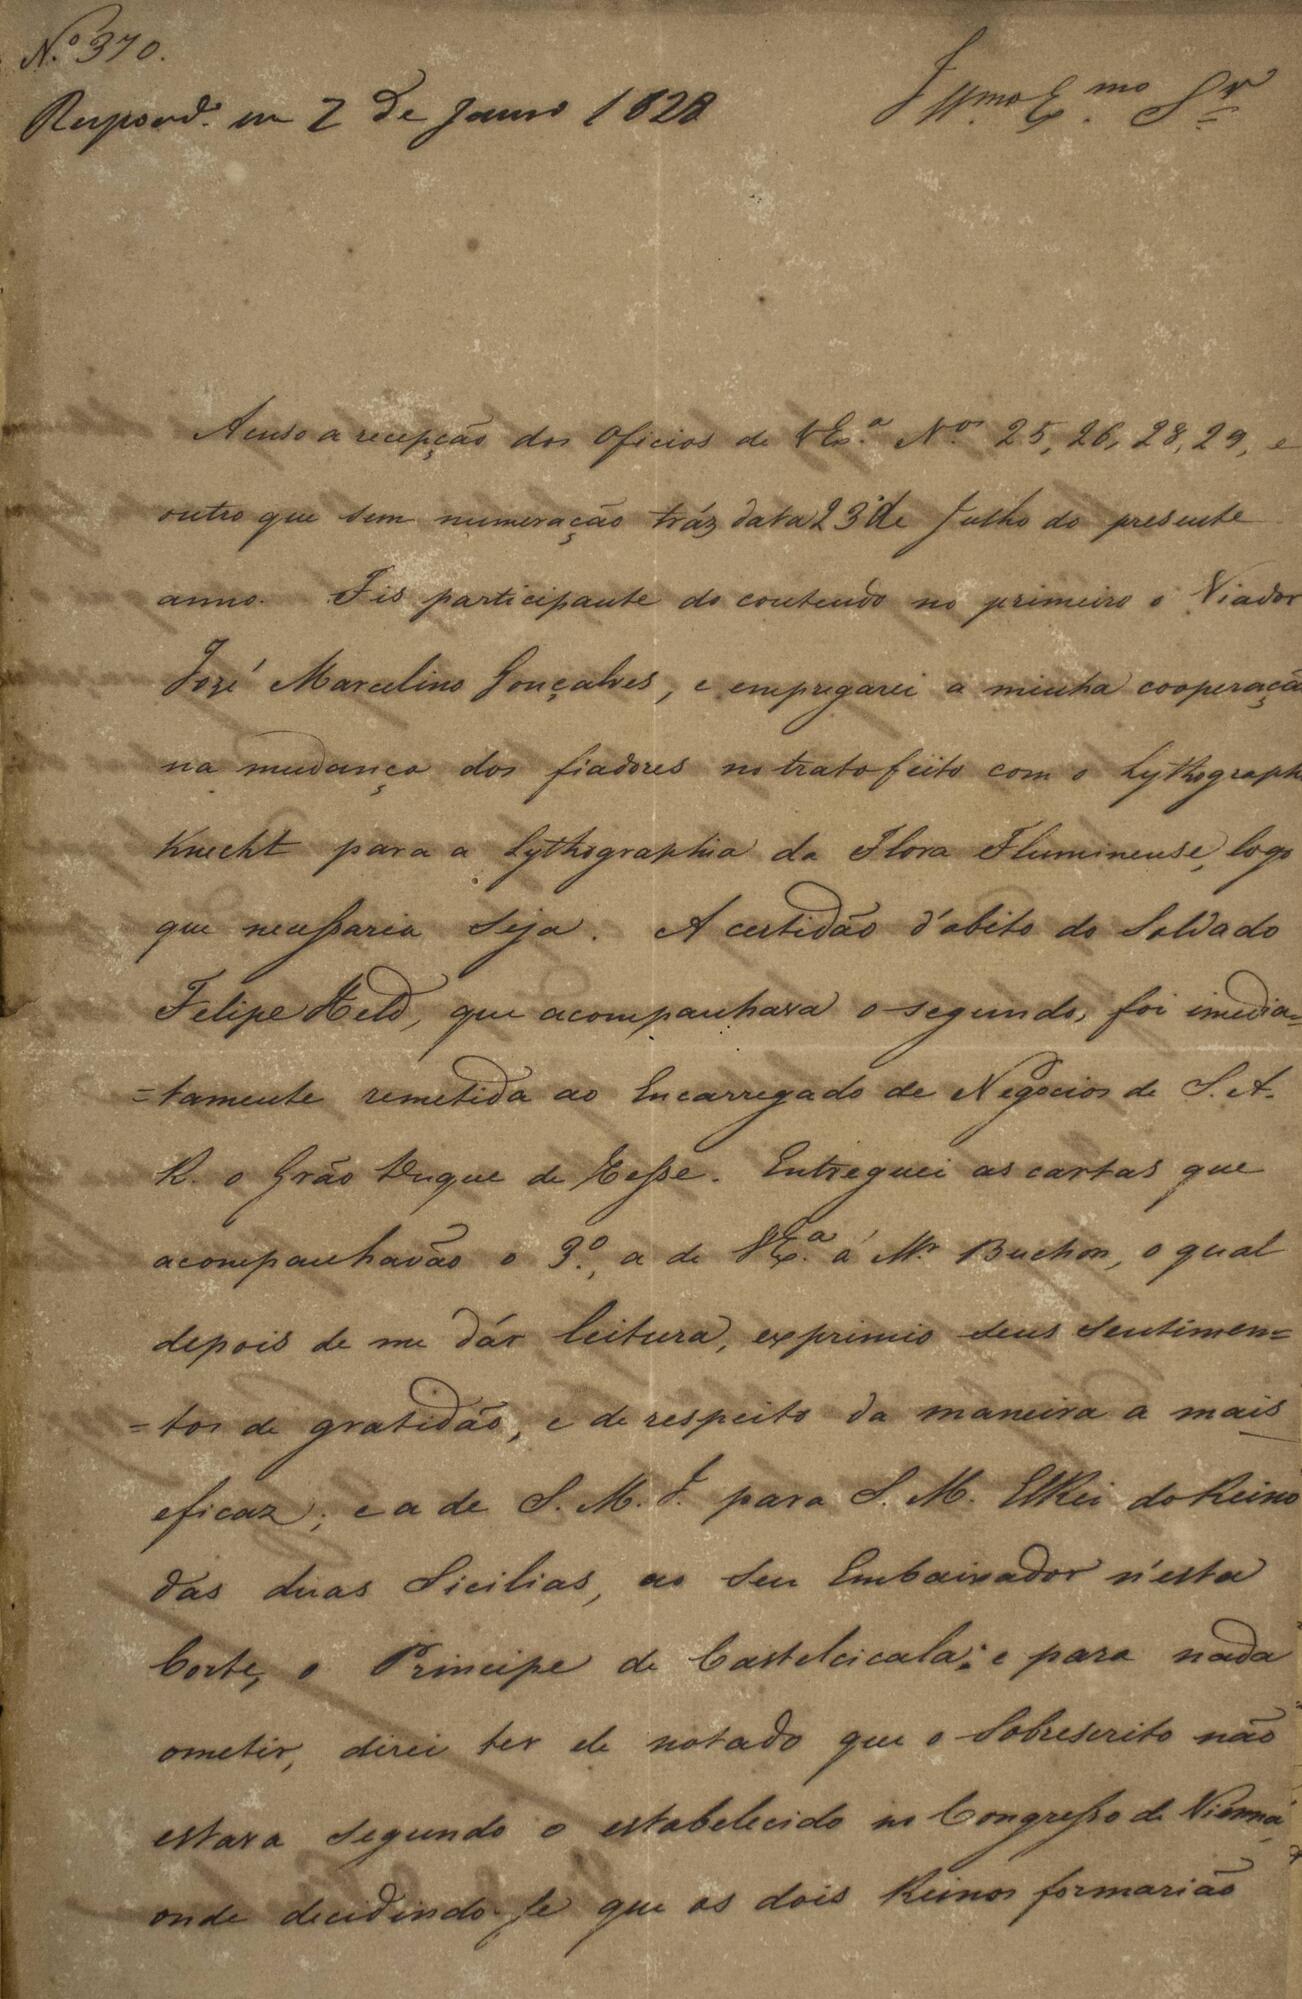 N.º 370.
Respond.º em 2 de Janro 1828
Illmo. Exmo. Sr.
Acuso a recepção dos Oficios de VEx.ª N.os 25, 26, 28, 29, e
outro que sem numeração tráz data 23 de Julho do presente
anno. Fis participante do conteudo no primeiro o Viador
Jozé Marcelino Gonçalves, e empregarei a minha cooperação
na mudança dos fiadores no trato feito com o Lythograph
Knecht para a Lythographia da Flora Fluminense, logo
que necessaria seja. A certidão d'obito do Soldado
Felipe Held, que acompanhava o segundo, foi imedia=
=tamente remetida ao Encarregado de Negocios de S. A.
R. o Grão Duque de Hesse. Entreguei as cartas que
acompanhavão o 3.º, a de VEx.ª á Mr. Buchon, o qual
depois de me dár leitura, exprimio seus sentimen=
=tos de gratidão, e de respeito da maneira a mais
eficaz; e a de S. M. I. para S. M. ElRei do Reino
das duas Sicilias, ao seu Embaixador n'esta
Corte, o Principe de Castelcicala; e para nada
ometir, direi ter ele notado que o Sobrescrito não
estava segundo o estabelecido no Congresso de Vienna,
onde decidindo-se que os dois Reinos formarião